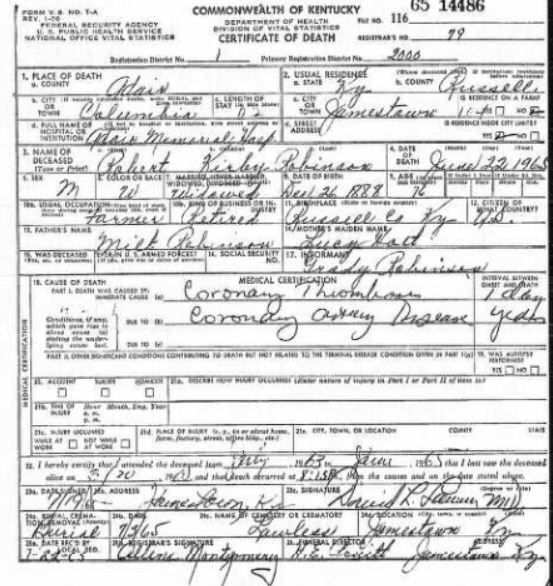 FORM V.S. NO. 1-A
REV. 1-56
FEDERAL SECURITY AGENCY
U. S. PUBLIC HEALTH SERVICE
NATIONAL OFFICE VITAL STATISTICS
COMMONWEALTH OF KENTUCKY
DEPARTMENT OF HEALTH
DIVISION OF VITAL STATISTICS
CERTIFICATE OF DEATH
65 14486
FILE NO. 116
REGISTRAR'S NO. 79
Registration District No. 1 Primary Registration District No. 2000
1. PLACE OF DEATH
a. COUNTY Adair
2. USUAL RESIDENCE
a. STATE Ky b. COUNTY Russell
b. CITY OR TOWN Columbia c. LENGTH OF STAY
c. CITY OR TOWN Jamestown IS RESIDENCE ON A FARM?
d. FULL NAME OF HOSPITAL OR INSTITUTION Adair Memorial Hosp.
d. STREET ADDRESS IS RESIDENCE INSIDE CITY LIMITS? YES NO
3. NAME OF DECEASED (Type or Print) Robert Kirby Robinson 4. DATE OF DEATH June 22 1965
5. SEX M 6. COLOR OR RACE W Widowed 8. DATE OF BIRTH Dec 26 1888 9. AGE 76
10a. USUAL OCCUPATION Farmer Retired 11. BIRTHPLACE Russell Co Ky 12. CITIZEN OF WHAT COUNTRY?
13. FATHER'S NAME Milt Robinson 14. MOTHER'S MAIDEN NAME Lucy
15. WAS DECEASED EVER IN U.S. ARMED FORCES? 16. SOCIAL SECURITY NO. 17. INFORMANT Grady Robinson
18. CAUSE OF DEATH MEDICAL CERTIFICATION INTERVAL BETWEEN ONSET AND DEATH
PART I. DEATH WAS CAUSED BY: IMMEDIATE CAUSE (a) Coronary Thrombosis 1 day
Conditions, if any, which gave rise to above cause (a) stating the underlying cause last.
DUE TO (b) Coronary Artery Disease yrs
DUE TO (c)
PART II. OTHER SIGNIFICANT CONDITIONS CONTRIBUTING TO DEATH BUT NOT RELATED TO THE TERMINAL DISEASE CONDITION GIVEN IN PART I(a) 19. WAS AUTOPSY PERFORMED? YES NO
MEDICAL CERTIFICATION
ACCIDENT SUICIDE HOMICIDE DESCRIBE HOW INJURY OCCURRED (Enter nature of injury in Part I or Part II of item 18.)
21b. TIME OF INJURY Hour Month, Day, Year
a. m.
p. m.
21c. INJURY OCCURRED WHILE AT WORK NOT WHILE AT WORK 21d. PLACE OF INJURY (e. g., in or about home, farm, factory, street, office bldg., etc.) 21e. CITY, TOWN, OR LOCATION COUNTY STATE
22. I hereby certify that I attended the deceased from 1963 to June 1965 that I last saw the deceased
alive on and that death occurred at from the causes and on the date stated above.
23a. DATE SIGNED 23b. ADDRESS Jamestown Ky 23c. SIGNATURE MD
24a. BURIAL, CREMATION, REMOVAL Burial 24b. DATE 24c. NAME OF CEMETERY OR CREMATORY Lawless 24d. LOCATION Jamestown Ky
25a. DATE REC'D BY LOCAL REG. 25b. REGISTRAR'S SIGNATURE Montgomery 26. FUNERAL DIRECTOR ADDRESS Jamestown Ky